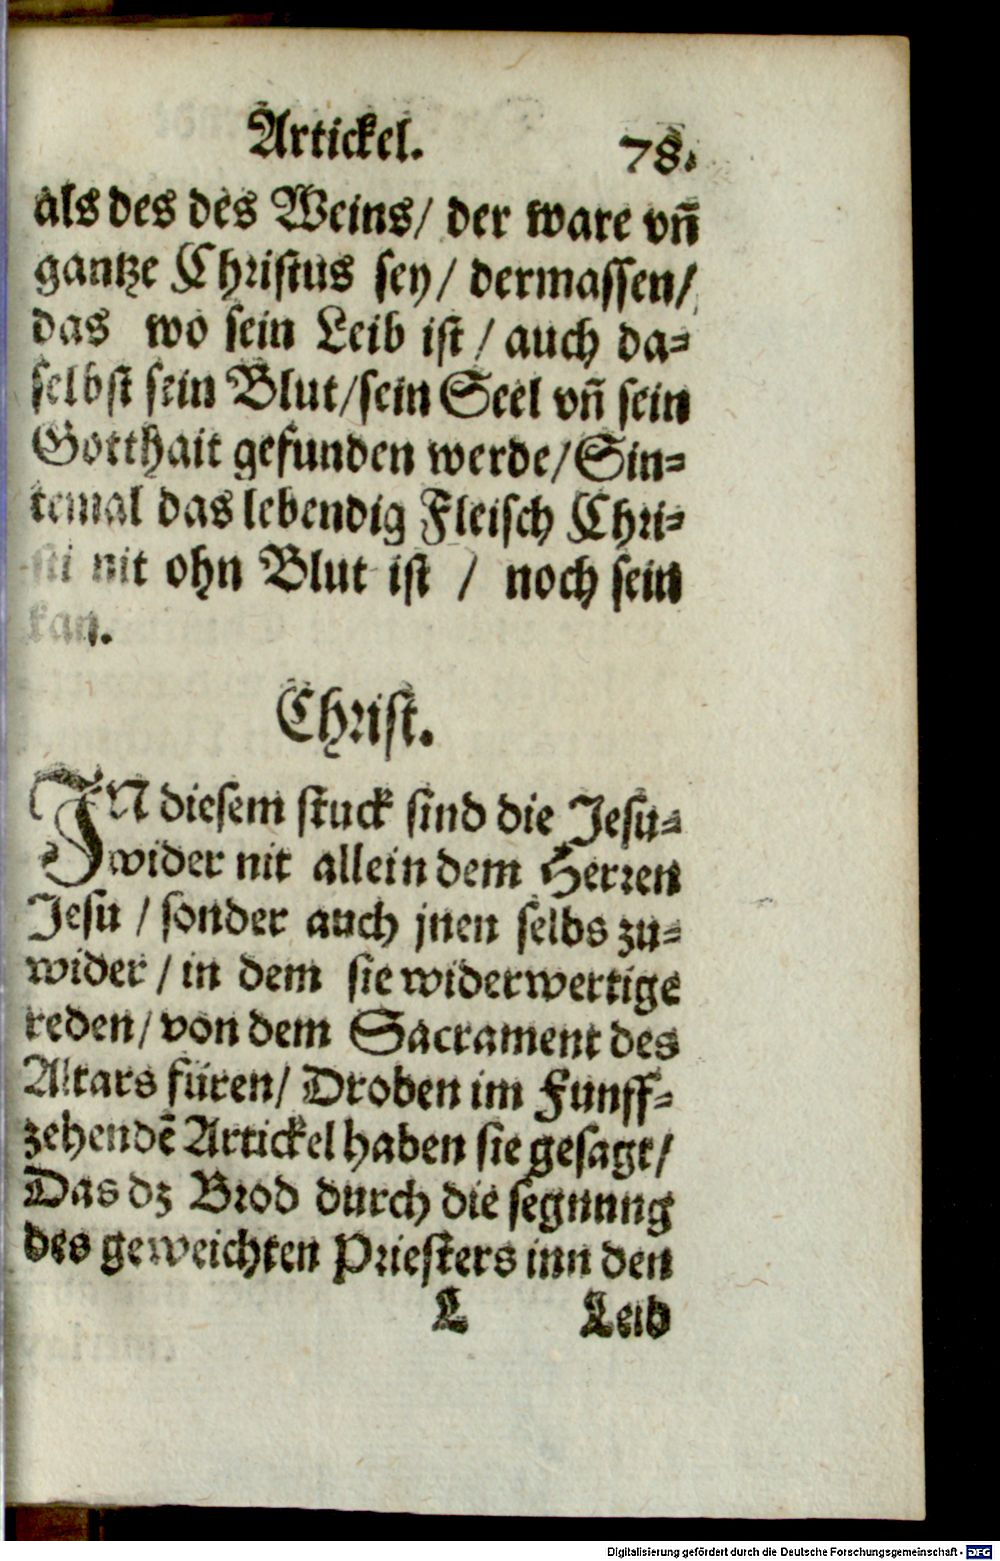 Artickel. 78.
als des des Weins/ der ware vñ
gantze Christus sey/ dermassen/
das wo sein Leib ist / auch da-
selbst sein Blut/sein Seel vñ sein
Gotthait gefunden werde/Sin-
temal das lebendig Fleisch Chri-
sti nit ohn Blut ist / noch sein
kan.
Christ.
IN diesem stuck sind die Jesu-
wider nit allein dem Herren
Jesu / sonder auch jnen selbs zu-
wider / in dem sie widerwertige
reden/ von dem Sacrament des
Altars füren/ Droben im Funff-
zehendẽ Artickel haben sie gesagt/
Das dz Brod durch die segnung
des geweichten Priesters inn den
L Leib
Digitalisierung gefördert durch die Deutsche Forschungsgemeinschaft - DFG